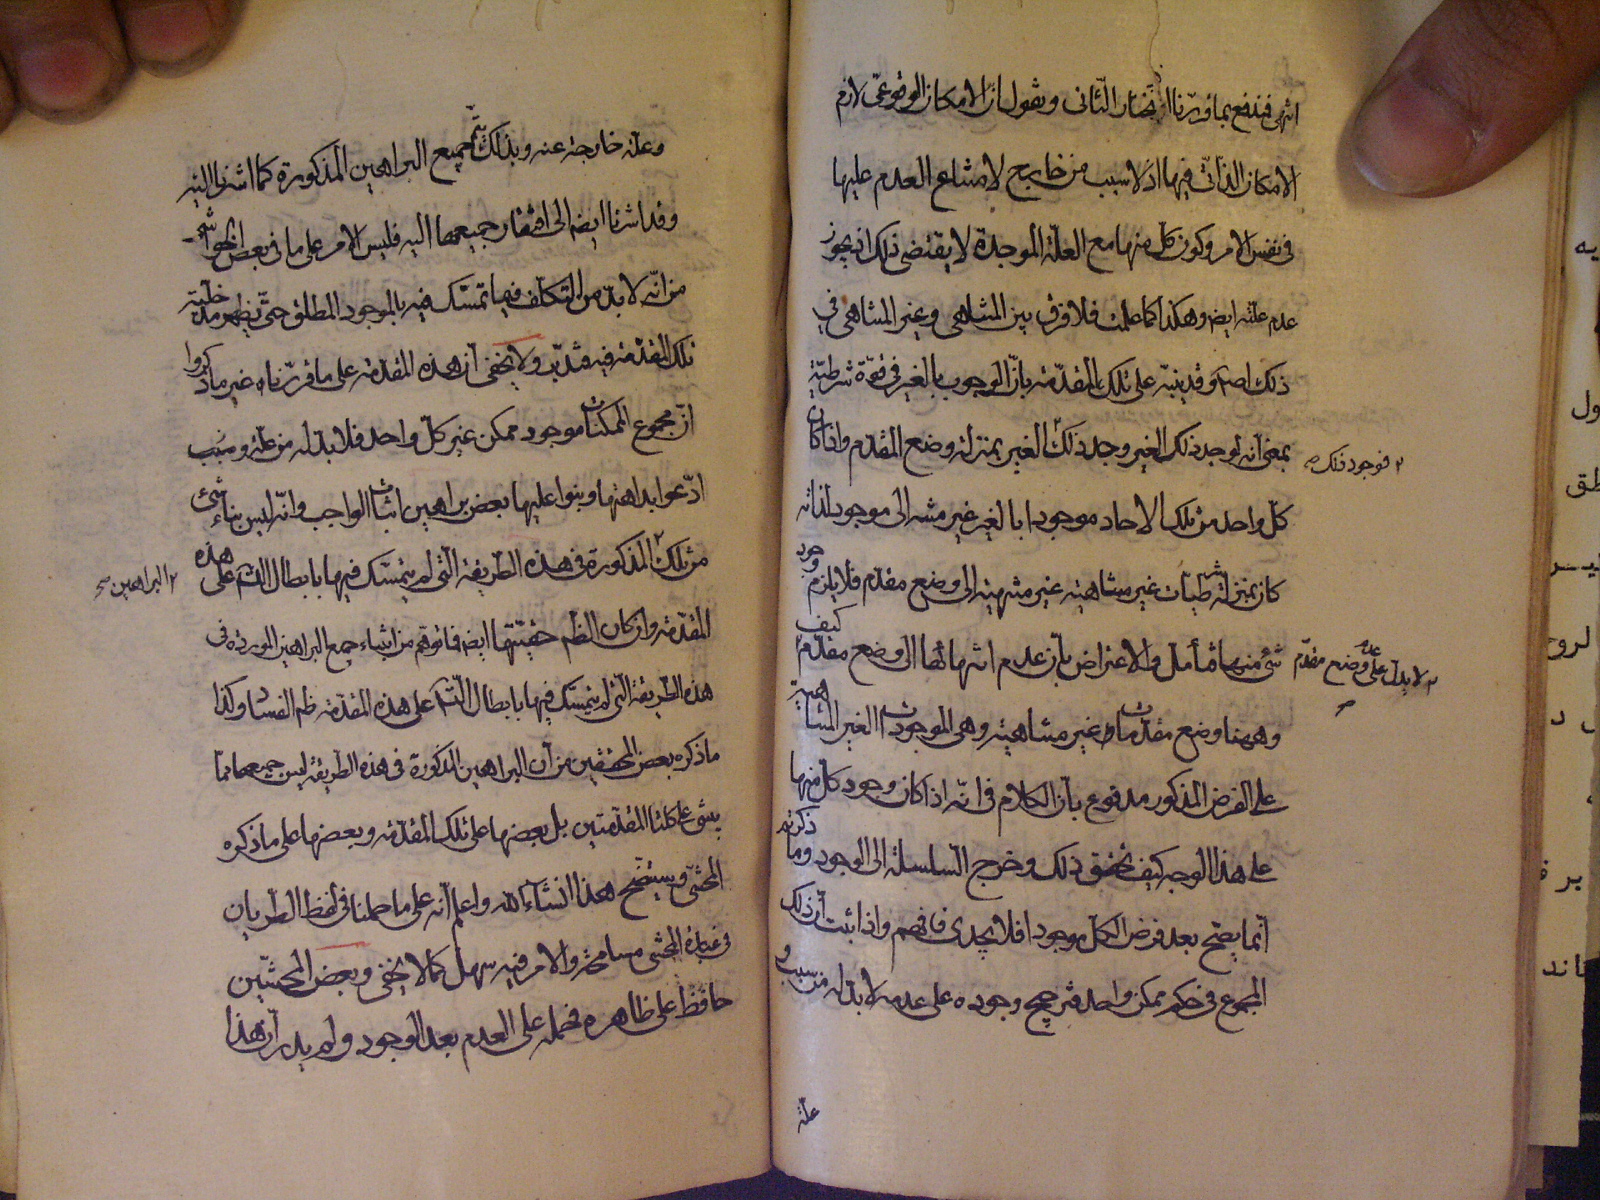 انتهى فندفع بما قررنا اذ نختار الثانى ونقول ان الامكان الوقوعى لازم
الامكان الذاتى فيها اذ لا سبب من خارج لامتناع العدم عليها
فى نفس الامر وكون كل منها مع العلة الموجدة لا يقتضى ذلك اذ يجوز
عدم علته ايضا وهكذا كما علمت فلا فرق بين المتناهى وغير المتناهى فى
ذلك اصلا وقد ينبه على تلك المقدمة بان الوجوب بالغير فى قوة شرطية
بمعنى انه لو وجد ذلك الغير وجد ذلك الغير بمنزلة وضع المقدم واذا كان
٢ فوجود ذلك صح
كل واحد من تلك الاحاد موجودا بالغير غير منته الى موجود لذاته
كان بمنزلة شرطيات غير متناهية غير منتهية الى وضع مقدم فلا يلزم وجود
شئ منها فتأمل والاعتراض بان عدم انتهائها الى وضع مقدم كيف
٢ لا يدل على عدم وضع مقدم
وههنا وضع مقدمات غير متناهية وهى الموجودات الغير المتناهية
على الفرض المذكور مدفوع بان الكلام فى انه اذا كان وجود كل منها
على هذا الوجه كيف تحقق ذلك وخرج السلسلة الى الوجود وما ذكرتم
انما يصح بعد فرض الكل موجودا فلا يجدى فافهم واذا ثبت ان ذلك
المجموع فى حكم ممكن واحد فترجيح وجوده على عدمه لا بد له من سبب و
علة
وعلة خارجة عنه وبذلك يتم جميع البراهين المذكورة كما اشرنا اليه
وقد اشرنا ايضا الى افتقار جميعها اليه فليس الامر على ما فى بعض الحواشى
من انه لا بد من التكلف فيما تمسك فيه بالموجود المطلق حتى يظهر مدخلية
تلك المقدمة فيه فتدبر ولا يخفى ان هذه المقدمة على ما قررناه غير ما ذكروا
ان مجموع الممكنات موجود ممكن غير كل واحد فلا بد له من علة وسبب
ادعوا بداهتها وبنوا عليها بعض براهين اثبات الواجب وانه ليس بناء شئ
من تلك المذكورة فى هذه الطريقة التى لم يتمسك فيها بابطال التس على هذه
٢ البراهين صح
المقدمة وان كان الظم حقيتها ايضا فما توهم من ابتناء جميع البراهين الموردة فى
هذه الطريقة التى لم يتمسك فيها بابطال التس على هذه المقدمة ظم الفساد وكذا
ما ذكره بعض المحققين من ان البراهين المذكورة فى هذه الطريقة ليس جميعها مما
يبتنى على كلتا المقدمتين بل بعضها على تلك المقدمة وبعضها على ما ذكره
المحشى وسيتضح هذا انشاء الله واعلم انه على ما حملنا فى لفظ الطريان
فى عبارة المحشى مسامحة والامر فيه سهل كما لا يخفى وبعض المحشين
حافظ على ظاهره فحمله على العدم بعد الوجود ولم يدر ان هذا